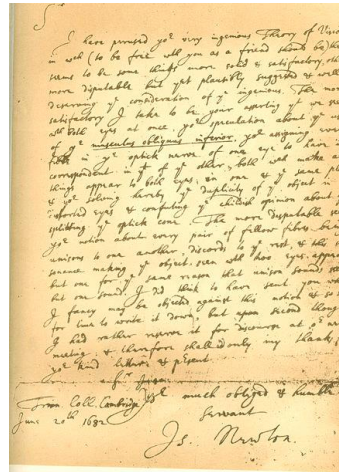 Sr
I have perused yor very ingenious Theory of Vision
in wch (to be free wth you as a friend should be) there
seems to be some things more solid & satisfactory, others
more disputable but yet plausibly suggested & well
deserving ye consideration of ye ingenious. The more
satisfactory I take to be your asserting yt we see
wth both eyes at once, yor speculation about ye use
of ye musculus obliquus inferior, yor assigning every
fibre in ye optick nerve of one eye to have its
correspondent in yt of ye other, both wch make all
things appear to both eyes in one & ye same place
& yor solving hereby ye duplicity of ye object in
distorted eyes & confuting ye childish opinion about ye
splitting ye optick cone. The more disputable seems
yor notion about every pair of fellow fibres being
unisons to one another, discords to ye rest, & this
consonance making ye object seen with two eyes appear
but one for ye same reason that unison sounds seem
but one sound. I
I fancy may be objected against this notion & so
for time to write it down, but upon second thoughts
I had rather reserve it for discourse at or next
meeting & therefore shall add only my thanks for
yor kind letter & present.
Sr I am
Trin. Coll. Cambridge yor much obliged & humble
June 20th 1682 Servant
Is. Newton.